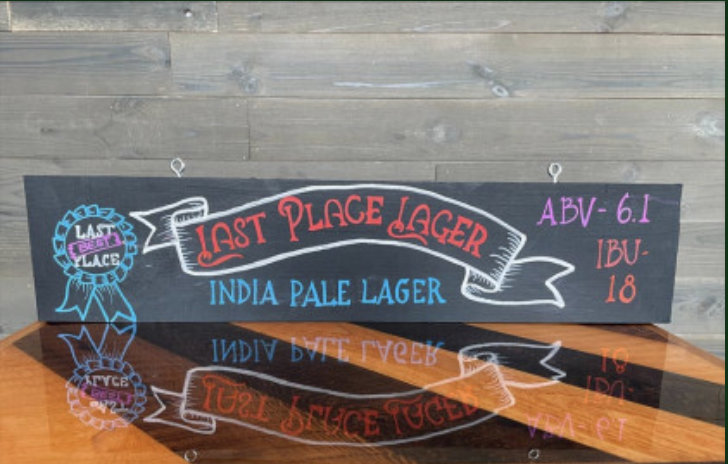 LAST
BEST
PLACE
LAST PLACE LAGER
INDIA PALE LAGER
ABV- 6.1
IBU-
18